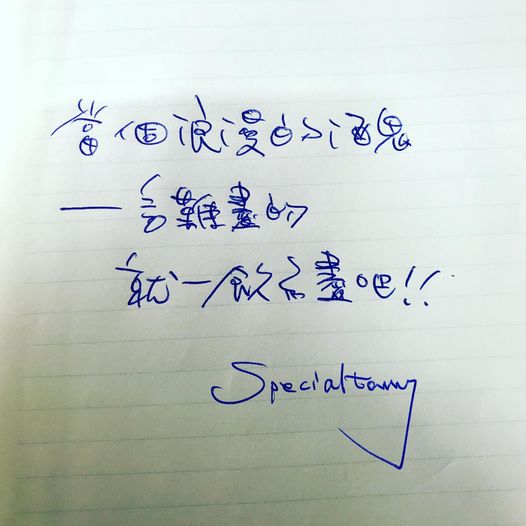 當個浪漫的酒鬼
一言難盡的
就一飲而盡吧!!
Specialtony